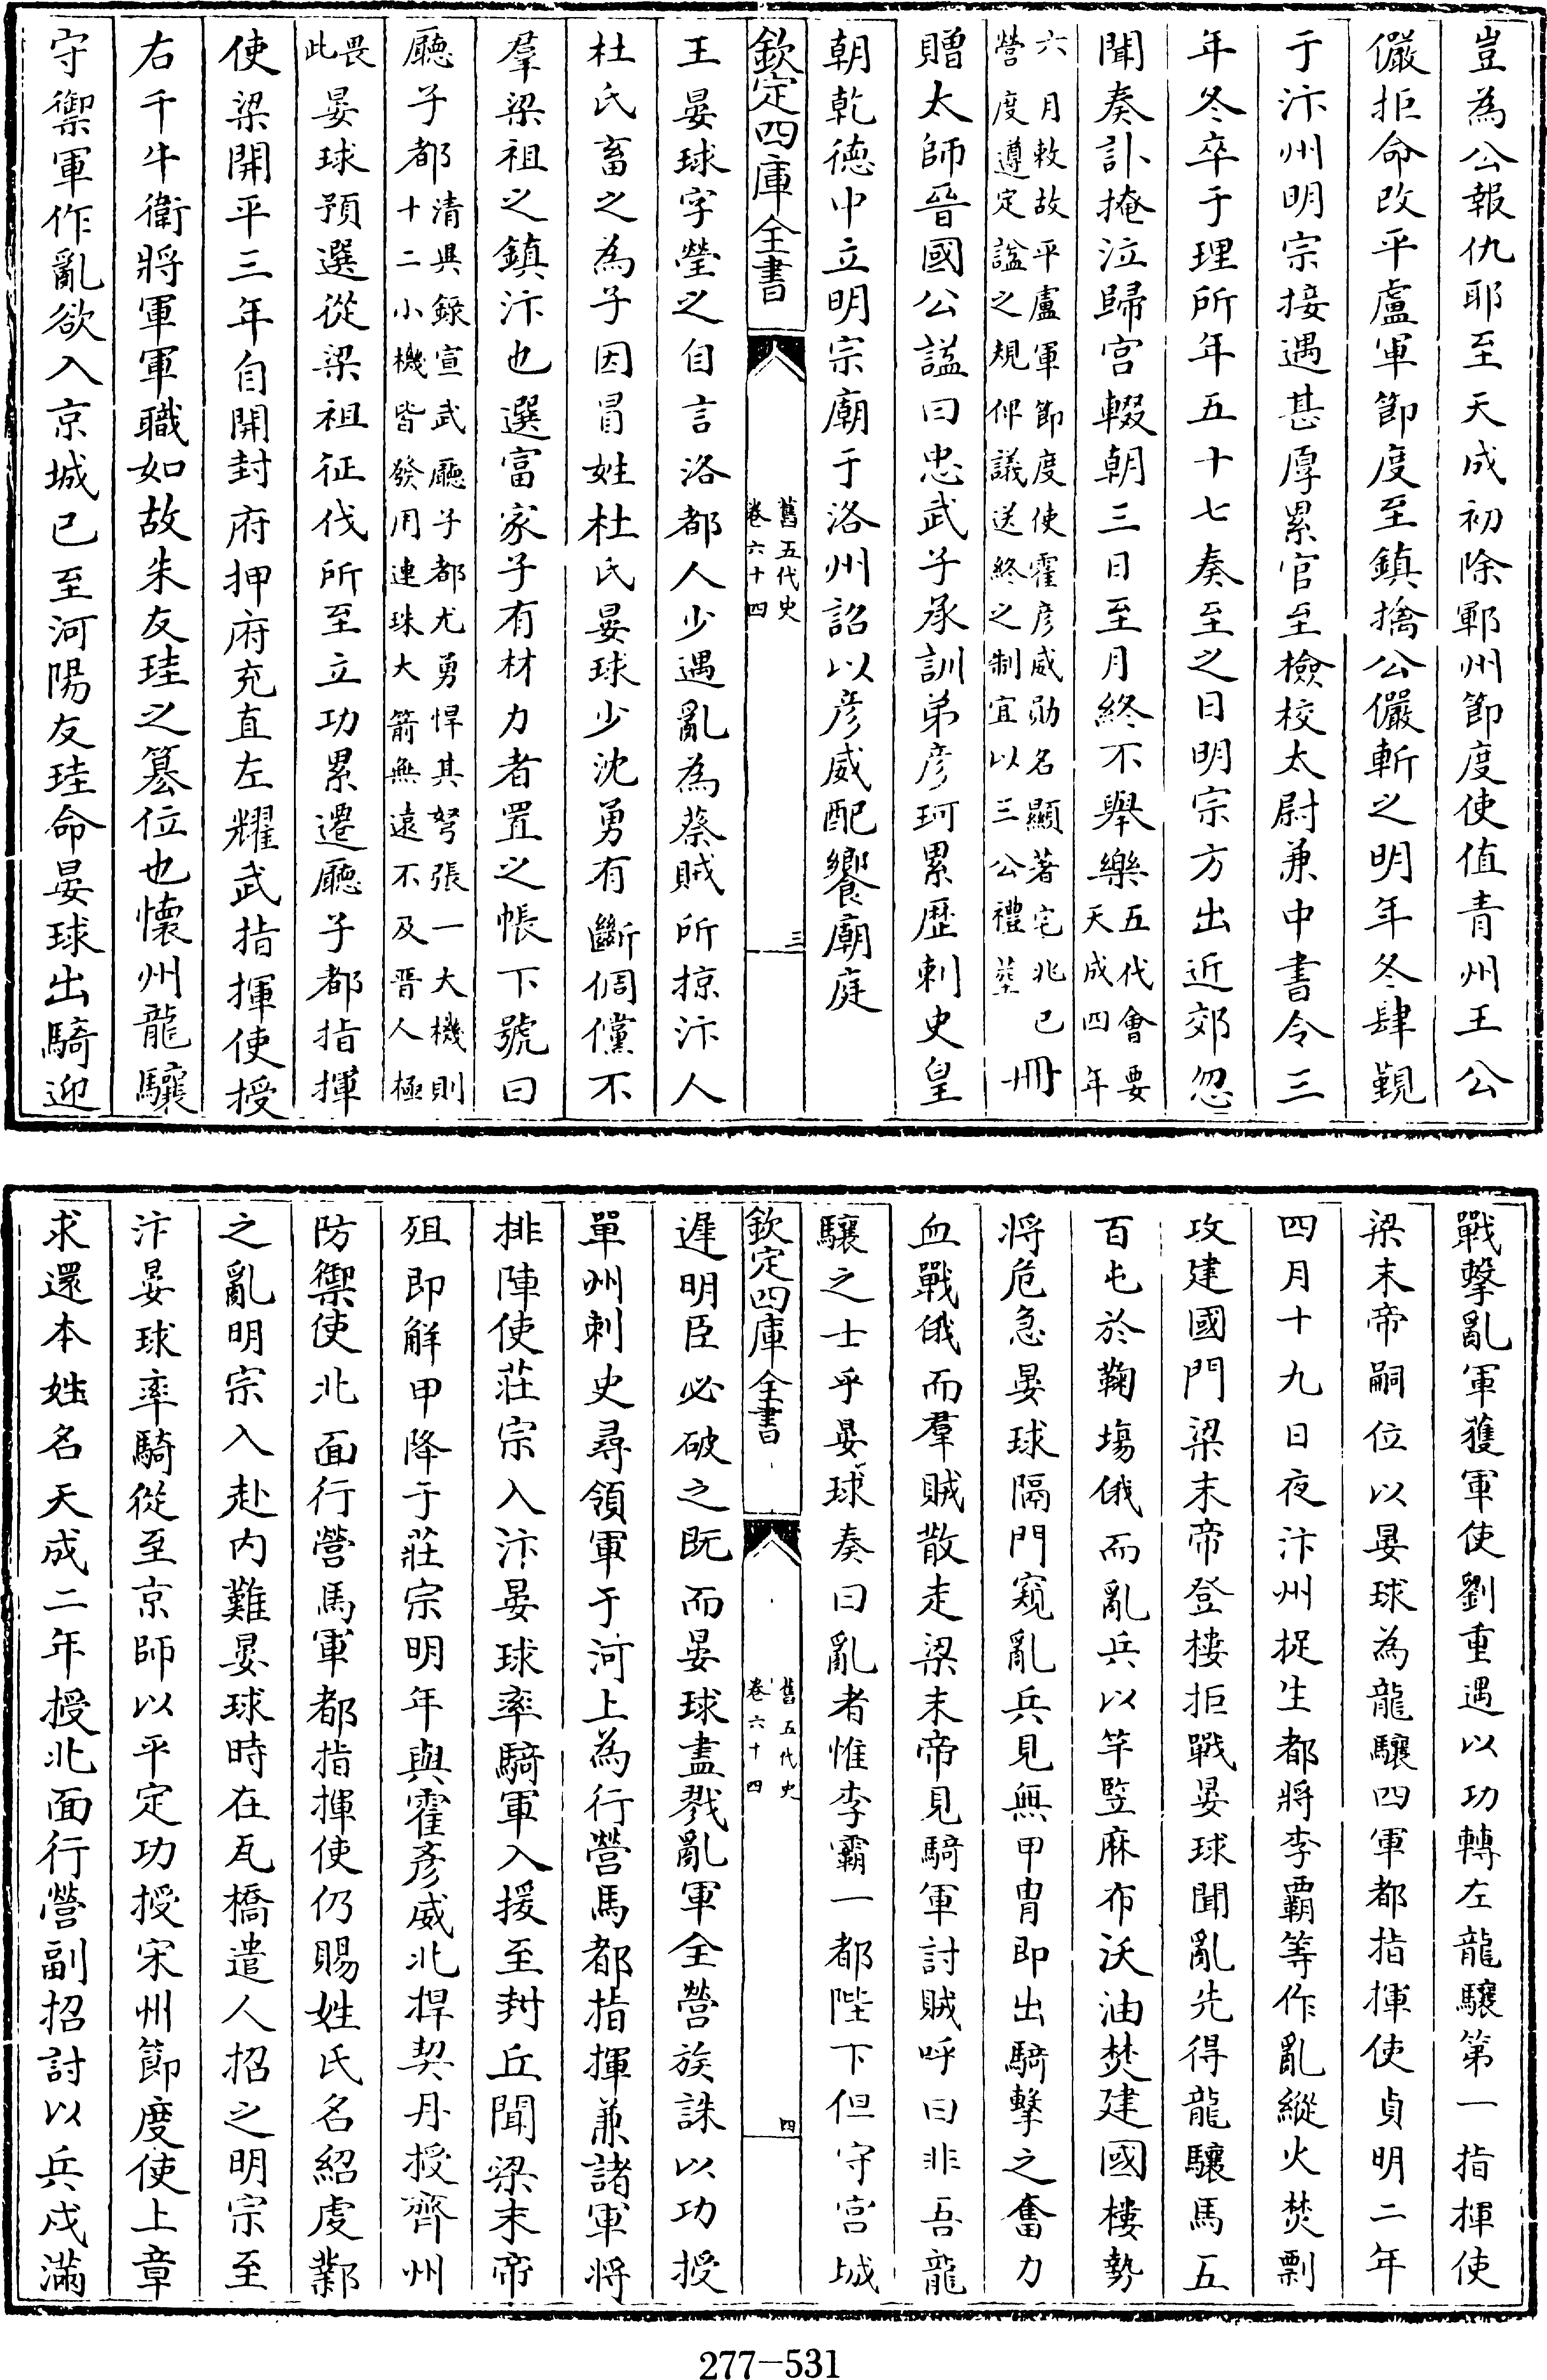 豈為公報仇耶至天成初除鄆州節度使值青州王公
儼拒命改平盧軍節度至鎮擒公儼斬之明年冬肆覲
于汴州明宗接遇甚厚累官至檢校太尉兼中書令三
年冬卒于理所年五十七奏至之日明宗方出近郊忽
聞奏訃掩泣歸宮輟朝三日至月終不舉樂五代會要天成四年
六月敕故平盧軍節度使霍彦威勛名顯著宅兆已營度遵定諡之規仰議送終之制宜以三公禮塟冊
贈太師晉國公諡曰忠武子承訓弟彦珂累歴刺史皇
朝乾德中立明宗廟于洛州詔以彦威配饗廟庭
欽定四庫全書
舊五代史
卷六十四
三
王晏球字瑩之自言洛都人少遇亂為蔡賊所掠汴人
杜氏畜之為子因冒姓杜氏晏球少沈勇有斷倜儻不
羣梁祖之鎮汴也選富家子有材力者置之帳下號曰
廳子都清異錄宣武廳子都尤勇悍其弩張一大機則十二小機皆發用連珠大箭無遠不及晉人極
畏此晏球預選從梁祖征伐所至立功累遷廳子都指揮
使梁開平三年自開封府押府充直左耀武指揮使授
右千牛衛將軍軍職如故朱友珪之簒位也懷州龍驤
守禦軍作亂欲入京城已至河陽友珪命晏球出騎迎
戰擊亂軍獲軍使劉重遇以功轉左龍驤第一指揮使
梁末帝嗣位以晏球為龍驤四軍都指揮使貞明二年
四月十九日夜汴州捉生都將李霸等作亂縱火焚剽
攻建國門梁末帝登樓拒戰晏球聞亂先得龍驤馬五
百屯於鞠場俄而亂兵以竿竪麻布沃油焚建國樓勢
將危急晏球隔門窺亂兵見無甲胄即出騎擊之奮力
血戰俄而羣賊散走梁末帝見騎軍討賊呼曰非吾龍
驤之士乎晏球奏曰亂者惟李霸一都陛下但守宮城
欽定四庫全書
舊五代史
卷六十四
四
遲明臣必破之既而晏球盡戮亂軍全營族誅以功授
單州刺史尋領軍于河上為行營馬都指揮兼諸軍將
排陣使莊宗入汴晏球率騎軍入援至封丘聞梁末帝
殂即解甲降于莊宗明年與霍彦威北捍契丹授齊州
防禦使北面行營馬軍都指揮使仍賜姓氏名紹虔鄴
之亂明宗入赴内難晏球時在瓦橋遣人招之明宗至
汴晏球率騎從至京師以平定功授宋州節度使上章
求還本姓名天成二年授北面行營副招討以兵戍滿
277-531